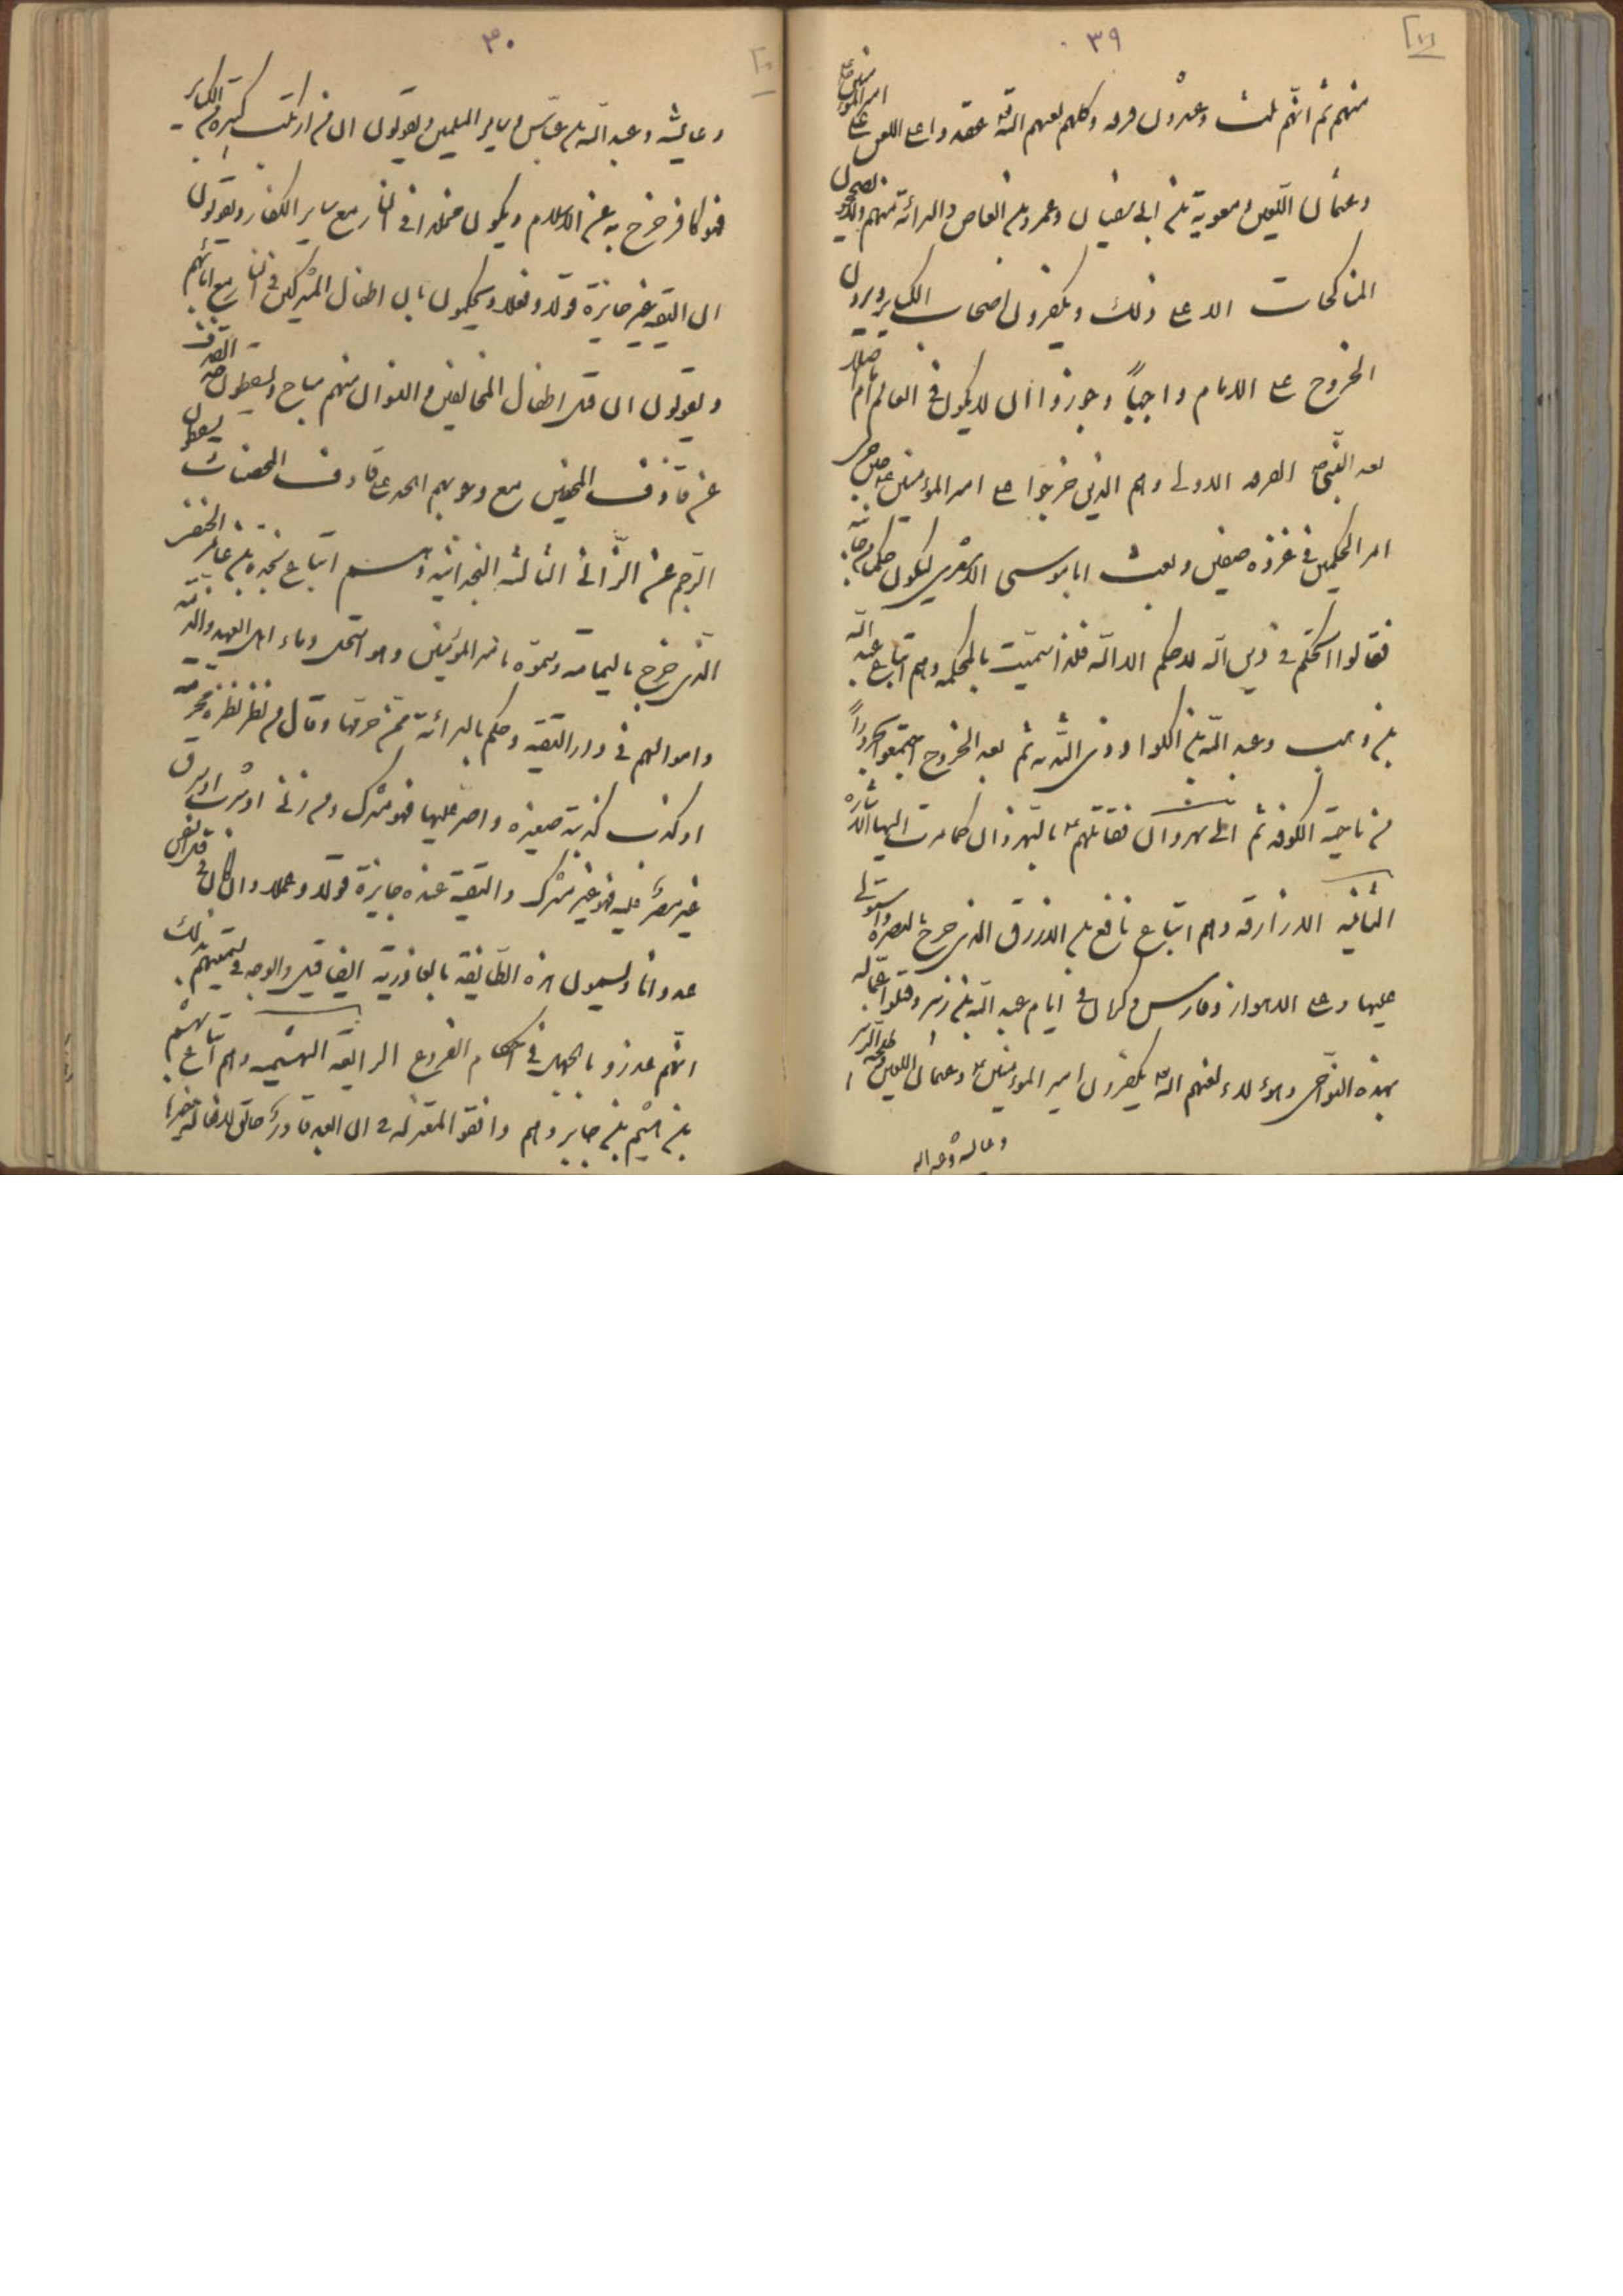 ٣٩
منهم ثم انّهم ثلث وعشرون فرقه وكلهم لعنهم اللّه عقدوا على اللعن على امير المؤمنين
وعثمان اللّعين ومعوية بن ابى سفيان وعمرو بن العاص والبرائة منهم ولا يصحّحون
المناكحات الا على ذلك ويكفرون اصحاب الكباير ويرون
الخروج على الامام واجباً وجوزوا ان لا يكون فى العالم امام اصلا
بعد النّبى الفرقه الاولى وهم الذين خرجوا على امير المؤمنين حين جرى
امر الحكمين فى غزوه صفين وبعث ابا موسى الاشعرى ليكون حكما من جانبه
فقالوا اتحكّم فى دين اللّه لا حكم الا اللّه فلذا سمّيت بالمحكمه وهم اتباع عبد اللّه
بن وهب وعبد اللّه بن الكوا وذى الثّديه ثم بعد الخروج اجتمعوا بحروراً
من ناحية الكوفه ثم الى نهروان فقاتلهم بالنهروان كما مرت اليها الاشارة
الثانيه الازارقه وهم اتباع نافع بن الازرق الذى خرج بالبصرة واستولى
عليها وعلى الاهواز وفارس وكرمان فى ايام عبد اللّه بن زبير وقتلوا عمّاله
بهذه النّواحى وهؤلاء لعنهم اللّه يكفرون امير المؤمنين وعثمان اللعين وطلحه والزبير
وعايشه وعبد اللّه
٣٠
وعايشه وعبد اللّه بن عبّاس وساير المسلمين ويقولون ان من ارتكب كبيرة من الكباير
فهو كافر خرج به عن الاسلام ويكون مخلدا فى النار مع ساير الكفار ويقولون
ان التقيه غير جايزة قولا وفعلا ويحكمون بان اطفال المشركين فى النار مع ابائهم
ويقولون ان قتل اطفال المخالفين والنسوان منهم مباح ويسقطون حد القذف
عن قاذف المحصنين مع وجوبهم الحد على قاذف المحصنات يسقطون
الرّجم عن الزّانى الثالثه النجدانيّه وهم اتباع نجدة بن عامر الحنفى
الذى خرج باليمامه وسمّوه بامير المؤمنين وهو استحل دماء اهل العهد والذمّه
واموالهم فى دار التقيه وحكم بالبرائة ممّن حرمها وقال من نظر نظرة محرّمه
او كذب كذبة صغيره واصرّ عليها فهو مشرك ومن زنى او شرب او سرق
غير مصرّ عليه فهو غير مشرك والتقية عنده جايزة قولا وعملا وان كان فى قتل النفس
عدوانا ويسمون هذه الطّايفة بالعاذرية ايضا قيل والوجه فى تسميتهم بذلك
انّهم عذروا بالجهل فى احكام الفروع الرابعه البهشميه وهم اتباع بهشم
بن هيثم بن جابر وهم وافقوا المعتزله فى ان العبد قادر خالق لافعاله